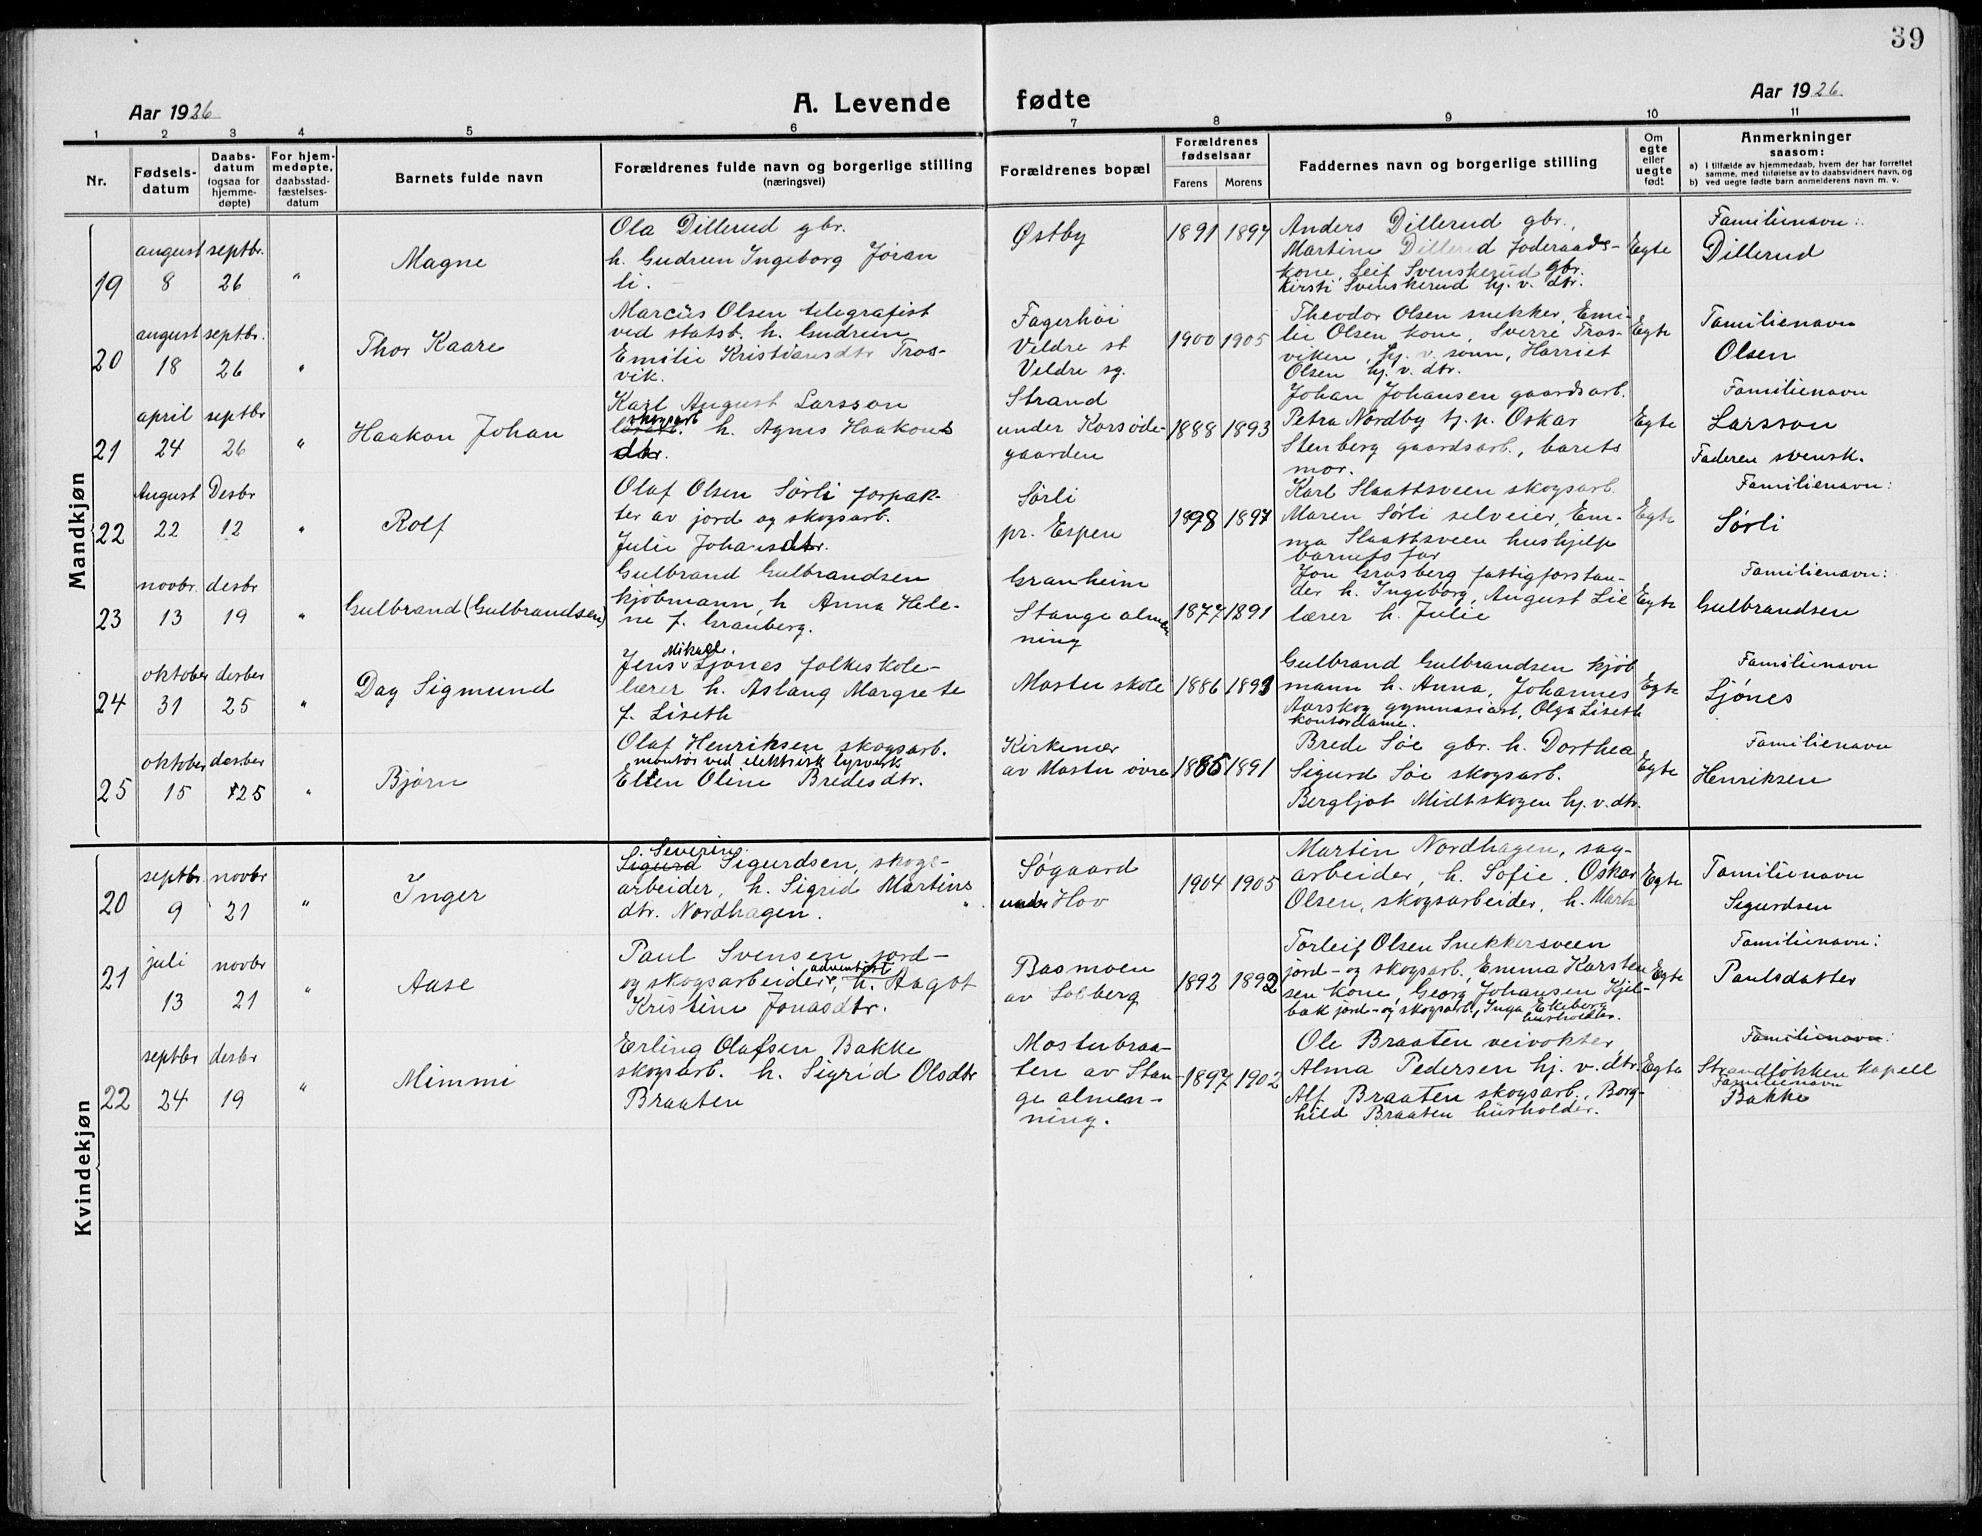 39
Aar 1926
A. Levende fødte
Aar 1926
1 2 3 4 5 6 7 8 9 10 11
Nr.
Fødsels-
datum
Daabs-
datum
(ogsaa for
hjemme-
døpte)
For hjem-
medøpte,
daabsstad-
fæstelses-
datum
Barnets fulde navn
Forældrenes fulde navn og borgerlige stilling
(næringsvei)
Forældrenes bopæl
Forældrenes
fødselsaar
Farens Morens
Faddernes navn og borgerlige stilling
Om
egte
eller
uegte
født
Anmerkninger
saasom:
a) I tilfælde av hjemmedaab, hvem der har forrettet
samme, med tilføielse av to daabsvidners navn, og
b) ved uegte fødte barn anmelderens navn m. v.
Mandkjøn
19
august
8
septbr.
26
"
Magne
Ola Dillerud gbr.
h. Gudrun Ingeborg Jöran
li.
Østby
1891 1897
Anders Dillerud gbr.,
Martine Dillerud foderaads-
kone, Leif Svenskerud gbr.
Kirsti Svenskerud hj. v. dtr.
Egte
Familienavn:
Dillerud
20
august
18
septbr.
26
"
Thor Kaare
Marcus Olsen telegrafist
ved statsb. h. Gudrun
Emilie Kristiansdtr Tros-
vik.
Fagerhöi
Veldre st
Veldre sg.
1900 1905
Theodor Olsen snekker, Emi-
lie Olsen kone, Sverre Tros-
viken, hj. v. sönn, Harriet
Olsen hj. v. dtr.
Egte
Familienavn
Olsen
21
april
24
septbr
26
"
Haakon Johan
Karl August Larsson
skogsarb
h. Agnes Haakons
dtr.
Strand
under Korsøde-
gaarden
1888 1893
Johan Johansen gaardsarb.
Petra Nordby tj. p. Oskar
Stenberg gaardsarb., barets
mor.
Egte
Familienavn
Larsson
Faderen svensk.
22
August
22
Desbr
12
"
Rolf
Olaf Olsen Sørli forpak-
ter av jord og skogsarb.
Julie Johansdtr.
Sørli
pr. Espen
1898 1897
Karl Slaattsveen skogsarb.
Maren Sørli selveier, Em-
ma Slaattsveen hushjelp
barnets far
Egte
Familienavn:
Sørli
23
novbr.
13
desbr
19
"
Gulbrand (Gulbrandsen)
Gulbrand Gulbrandsen
kjöbmann, h Anna Hele-
ne f. Granberg.
Granheim
Stange almen
ning
1877 1891
Jon Grasberg fattigforstan-
der h. Ingeborg, August Lie
lærer h. Julie
Egte
Familienavn:
Gulbrandsen
24
oktober
31
desber
25
"
Dag Sigmund
Mikael.
Jens Sjönes folkeskole-
lærer h. Aslaug Margrete
f. Liseth
Moster skole
1886 1893
Gulbrand Gulbrandsen kjöb
mann h. Anna, Johannes
Aarskog gymnasiast, Olga Liseth
kontordame.
Egte
Familienavn
Sjönes
25
oktober
15
desber
25
"
Bjørn
Olaf Henriksen skogsarb.
montör ved elektrisk lysverk
Ellen Oline Bredesdtr.
Kirkenær
av Moster övre
1885 1891
Brede Söe gbr. h. Dorthea
Sigurd Söe skogsarb.
Bergljot Midtskogen hj. v. dtr.
Egte
Familienavn
Henriksen
Kvindekjøn
20
septbr
9
novbr
21
"
Inger
Severin
Sigurd Sigurdsen, skogs-
arbeider, h. Sigrid Martins
dtr. Nordhagen.
Søgaard
under Hov
1904 1905
Martin Nordhagen, sag-
arbeider, h. Sofie. Oskar
Olsen, skogsarbeider, h. Marta
Egte
Familienavn
Sigurdsen
21
juli
13
novbr
21
"
Aase
Paul Svensen jord-
og skogsarbeider, adventist h. Aagot
Kristine Jonasdtr.
Basmoen
av Solberg
1892 1892
Torleif Olsen Snekkersveen
jord- og skogsarb, Emma Karsten
sen kone, Georg Johansen Kjel-
bak jord- og skogsarb, Inga Ekeberg
husholder.
Egte
Familienavn:
Paulsdatter
22
septbr
24
desbr
19
"
Mimmi
Erling Olafsen Bakke
skogsarb. h. Sigrid Olsdtr
Braaten
Mosterbraa-
ten av Stan-
ge almen-
ning.
1897 1902
Ole Braaten veivokter
Alma Pedersen hj. v. dtr
Alf Braaten skogsarb., Borg-
hild Braaten husholder.
Egte
Familienavn:
Strandløkken kapell
Familienavn
Bakke